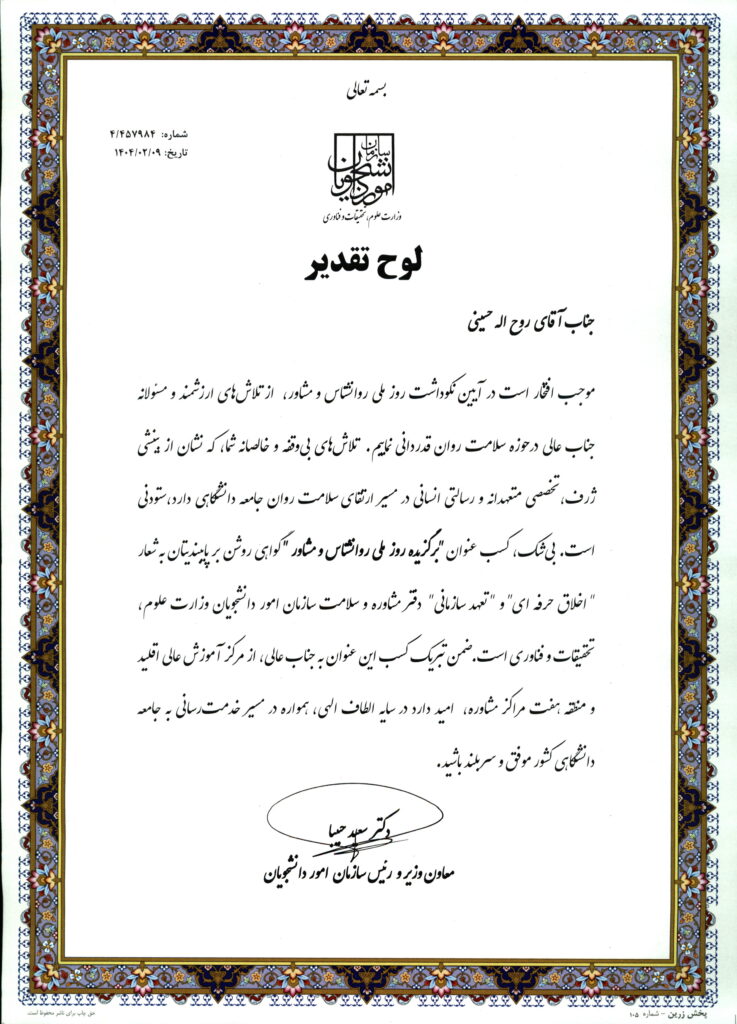 بسمه تعالی
شماره: ۴/۴۵۷۹۸۴
تاریخ: ۱۴۰۴/۰۲/۰۹
سازمان
امور دانشجویان
وزارت علوم، تحقیقات و فناوری
لوح تقدیر
جناب آقای روح اله حسینی
موجب افتخار است در آیین نکوداشت روز ملی روانشناس و مشاور، از تلاش‌های ارزشمند و مسئولانه
جناب عالی درحوزه سلامت روان قدردانی نماییم. تلاش‌های بی‌وقفه و خالصانه شما، که نشان از بینشی
ژرف، تخصصی متعهدانه و رسالتی انسانی در مسیر ارتقای سلامت روان جامعه دانشگاهی دارد،ستودنی
است. بی‌شک، کسب عنوان "برگزیده روز ملی روانشناس و مشاور" گواهی روشن بر پایبندیتان به شعار
"اخلاق حرفه ای" و "تعهد سازمانی" دفتر مشاوره و سلامت سازمان امور دانشجویان وزارت علوم،
تحقیقات و فناوری است.ضمن تبریک کسب این عنوان به جناب عالی، از مرکز آموزش عالی اقلید
و منطقه هفت مراکز مشاوره، امید دارد در سایه الطاف الهی، همواره در مسیر خدمت‌رسانی به جامعه
دانشگاهی کشور موفق و سربلند باشید.
دکتر سعید حبیبا
معاون وزیر و رئیس سازمان امور دانشجویان
پخش زرین - شماره ۱۰۵
حق چاپ برای ناشر محفوظ است.